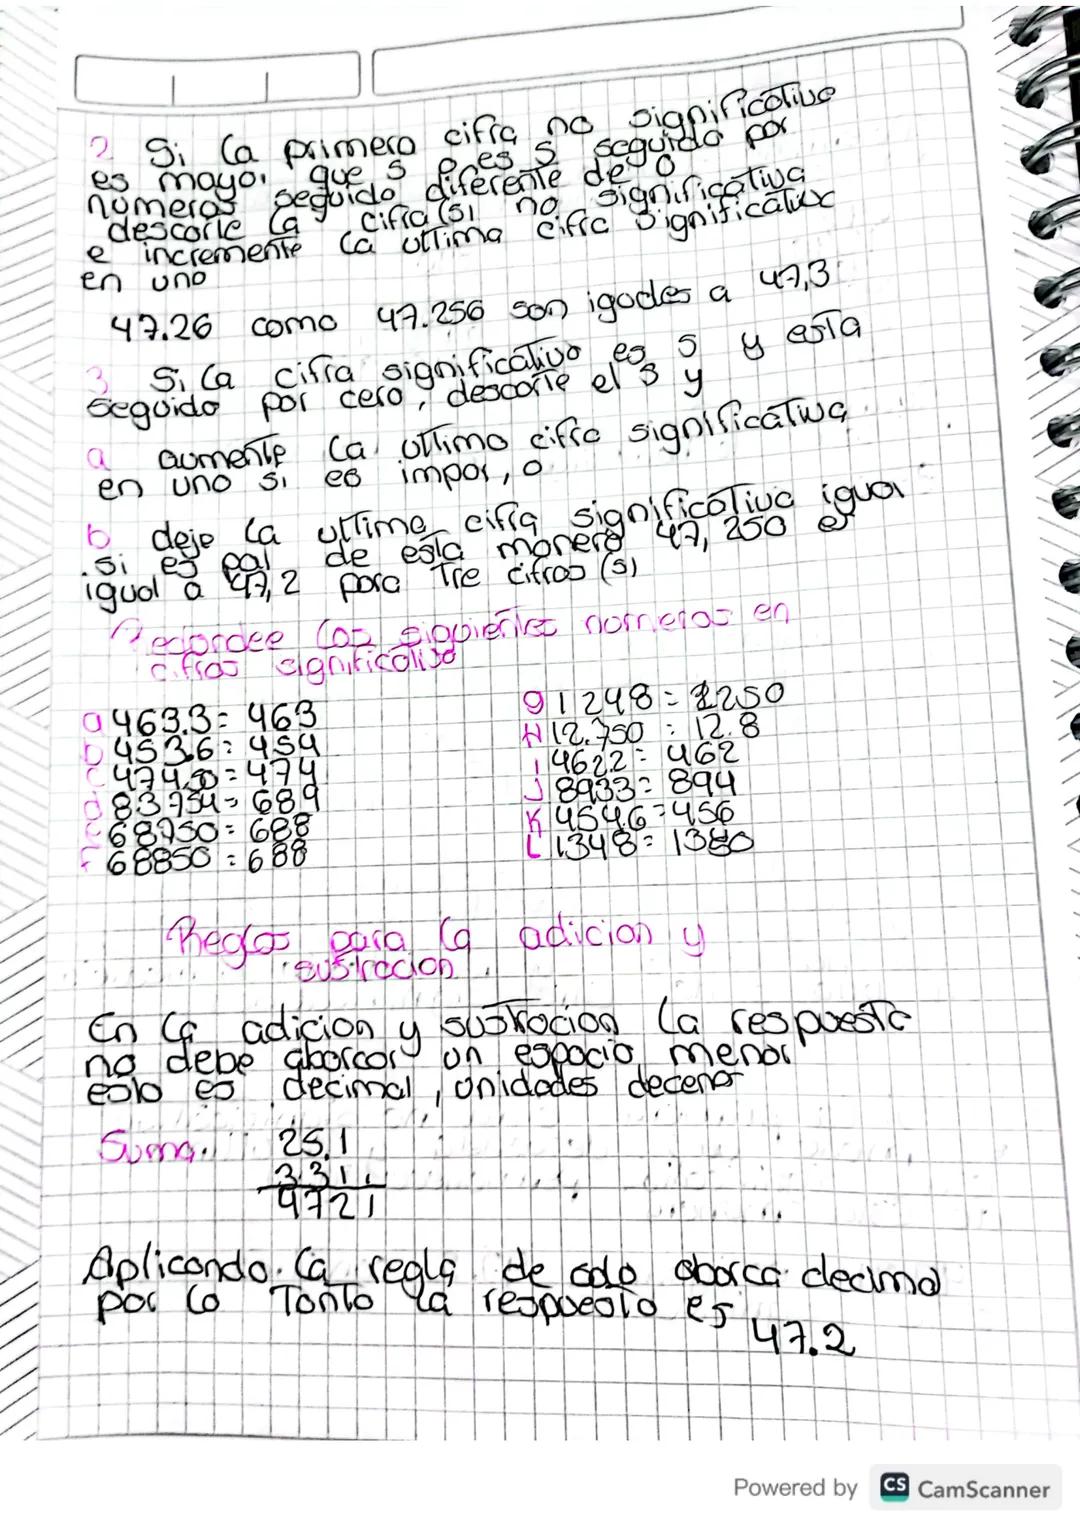 2 Si la primera cifra no significativa
es mayor que 5 o es 5 seguido por
numeros seguido diferente de 0
descarte la cifra(s) no significativa
e incremente la ultima cifra significativa
en uno
47.26 como 47.256 son igudes a 47,3
3 Si la cifra significativo es 5 y esta
seguido por cero, descarte el 5 y
a aumente la ultimo cifra significativa
en uno si es impar, o
b deje la ultima cifra significativa igual
si es par de esta manera 47,250 es
igual a 47,2 para Tre cifras (s)
Redondee los siguientes numeros en
cifras significativo
a 463.3 = 463
b 453.6 = 454
c 474.50 = 474
d 83 754 = 689
e 68750 = 688
f 68850 = 688
g 1248 = 1250
H 12.750 = 12.8
I 4622 = 462
J 8933 = 894
K 4546 = 456
L 1348 = 1380
Reglas para la adicion y
sustracion
En la adicion y sustrocion la respuesta
no debe abarcar un espacio menor
esto es decimal, unidades decenas
Suma. 25.1
2 2 1 1
4721
Aplicando la regla de solo abarca decimal
por lo Tanto la respuesta es
47.2
Powered by CS CamScanner